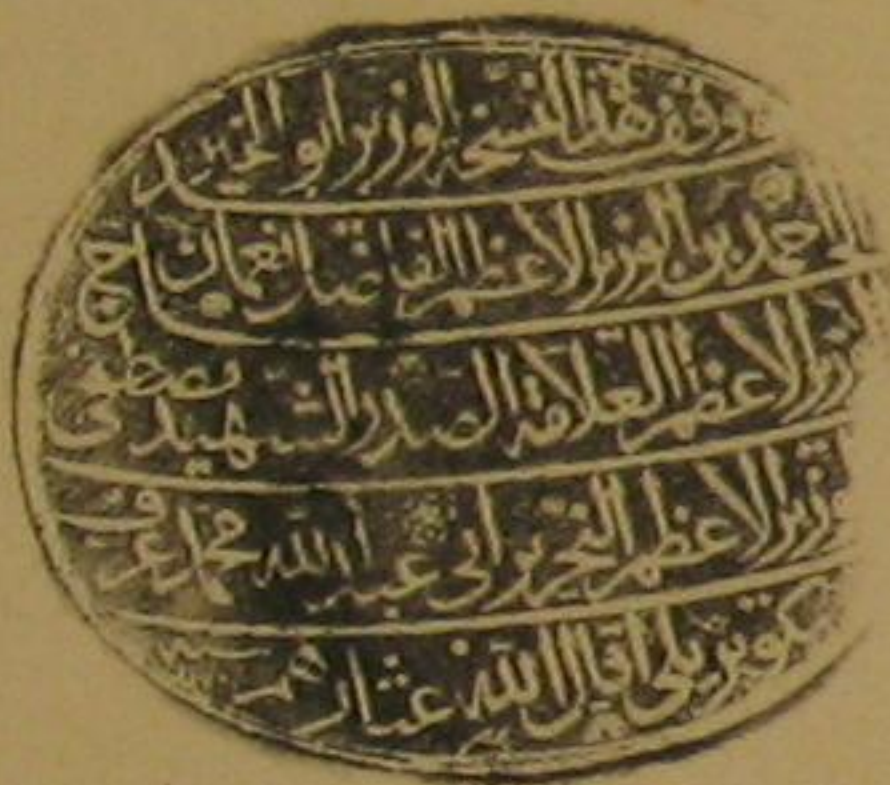 وقف هذا النسخة الوزير ابو الخير
احمد بن الوزير الاعظم الفاضل نعمان بن صاحب
الاعظم العلامة الصدر الشهيد مصطفى
الوزير الاعظم النحرير ابى عبد الله محمد عرف
بكوپريلى اقال الله عثارهم